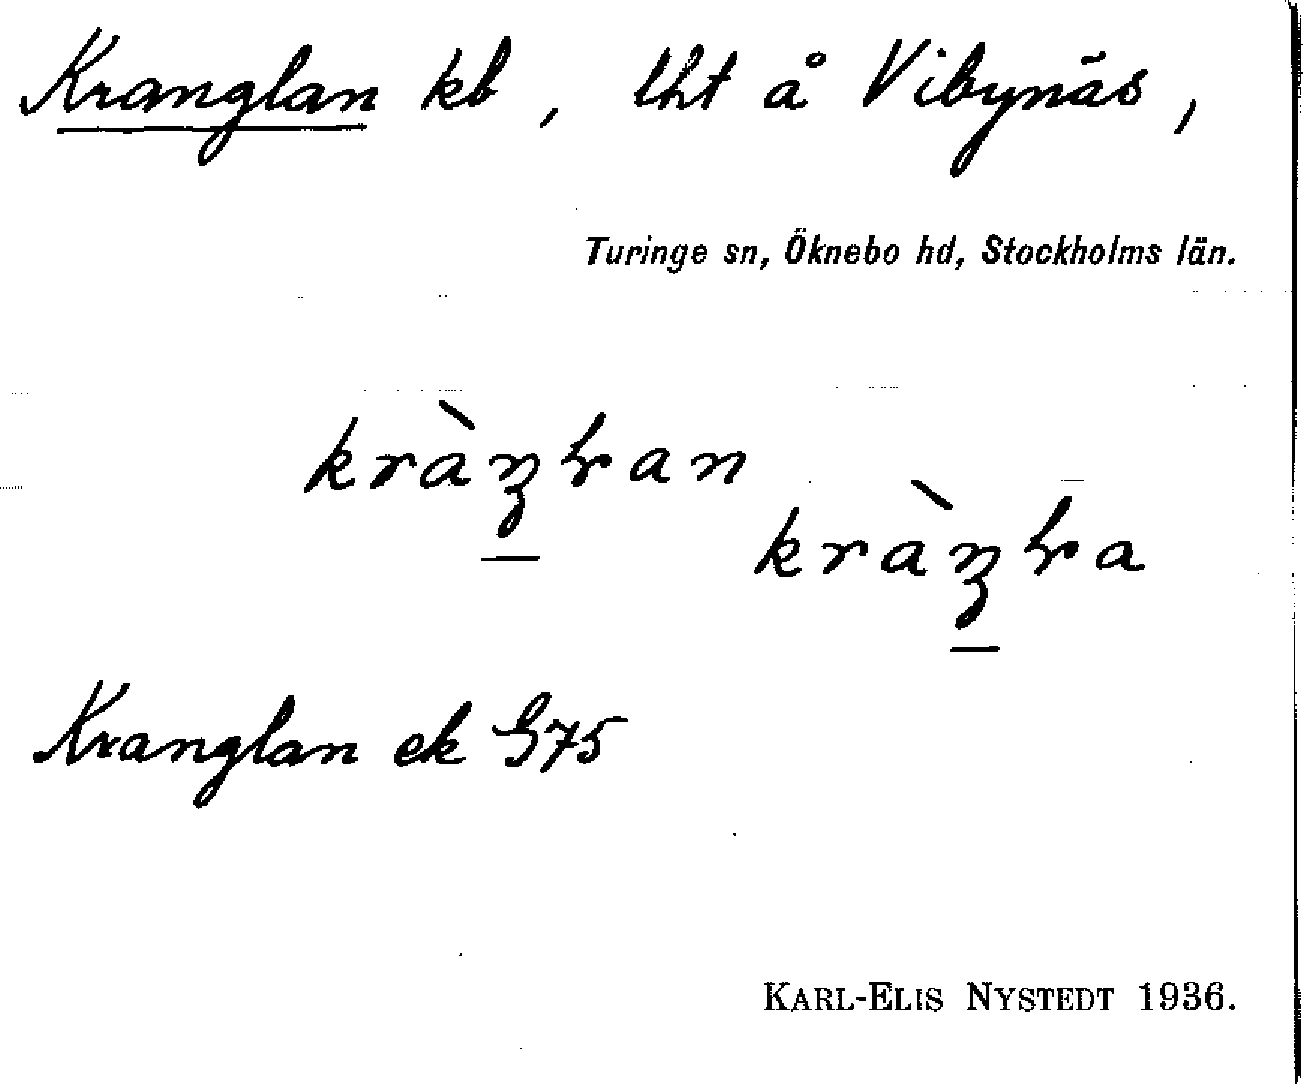 Kranglan kb, lht å Vibynäs,
Turinge sn, Öknebo hd, Stockholms län.
Kranglan ek G75
KARL-ELIS NYSTEDT 1936.